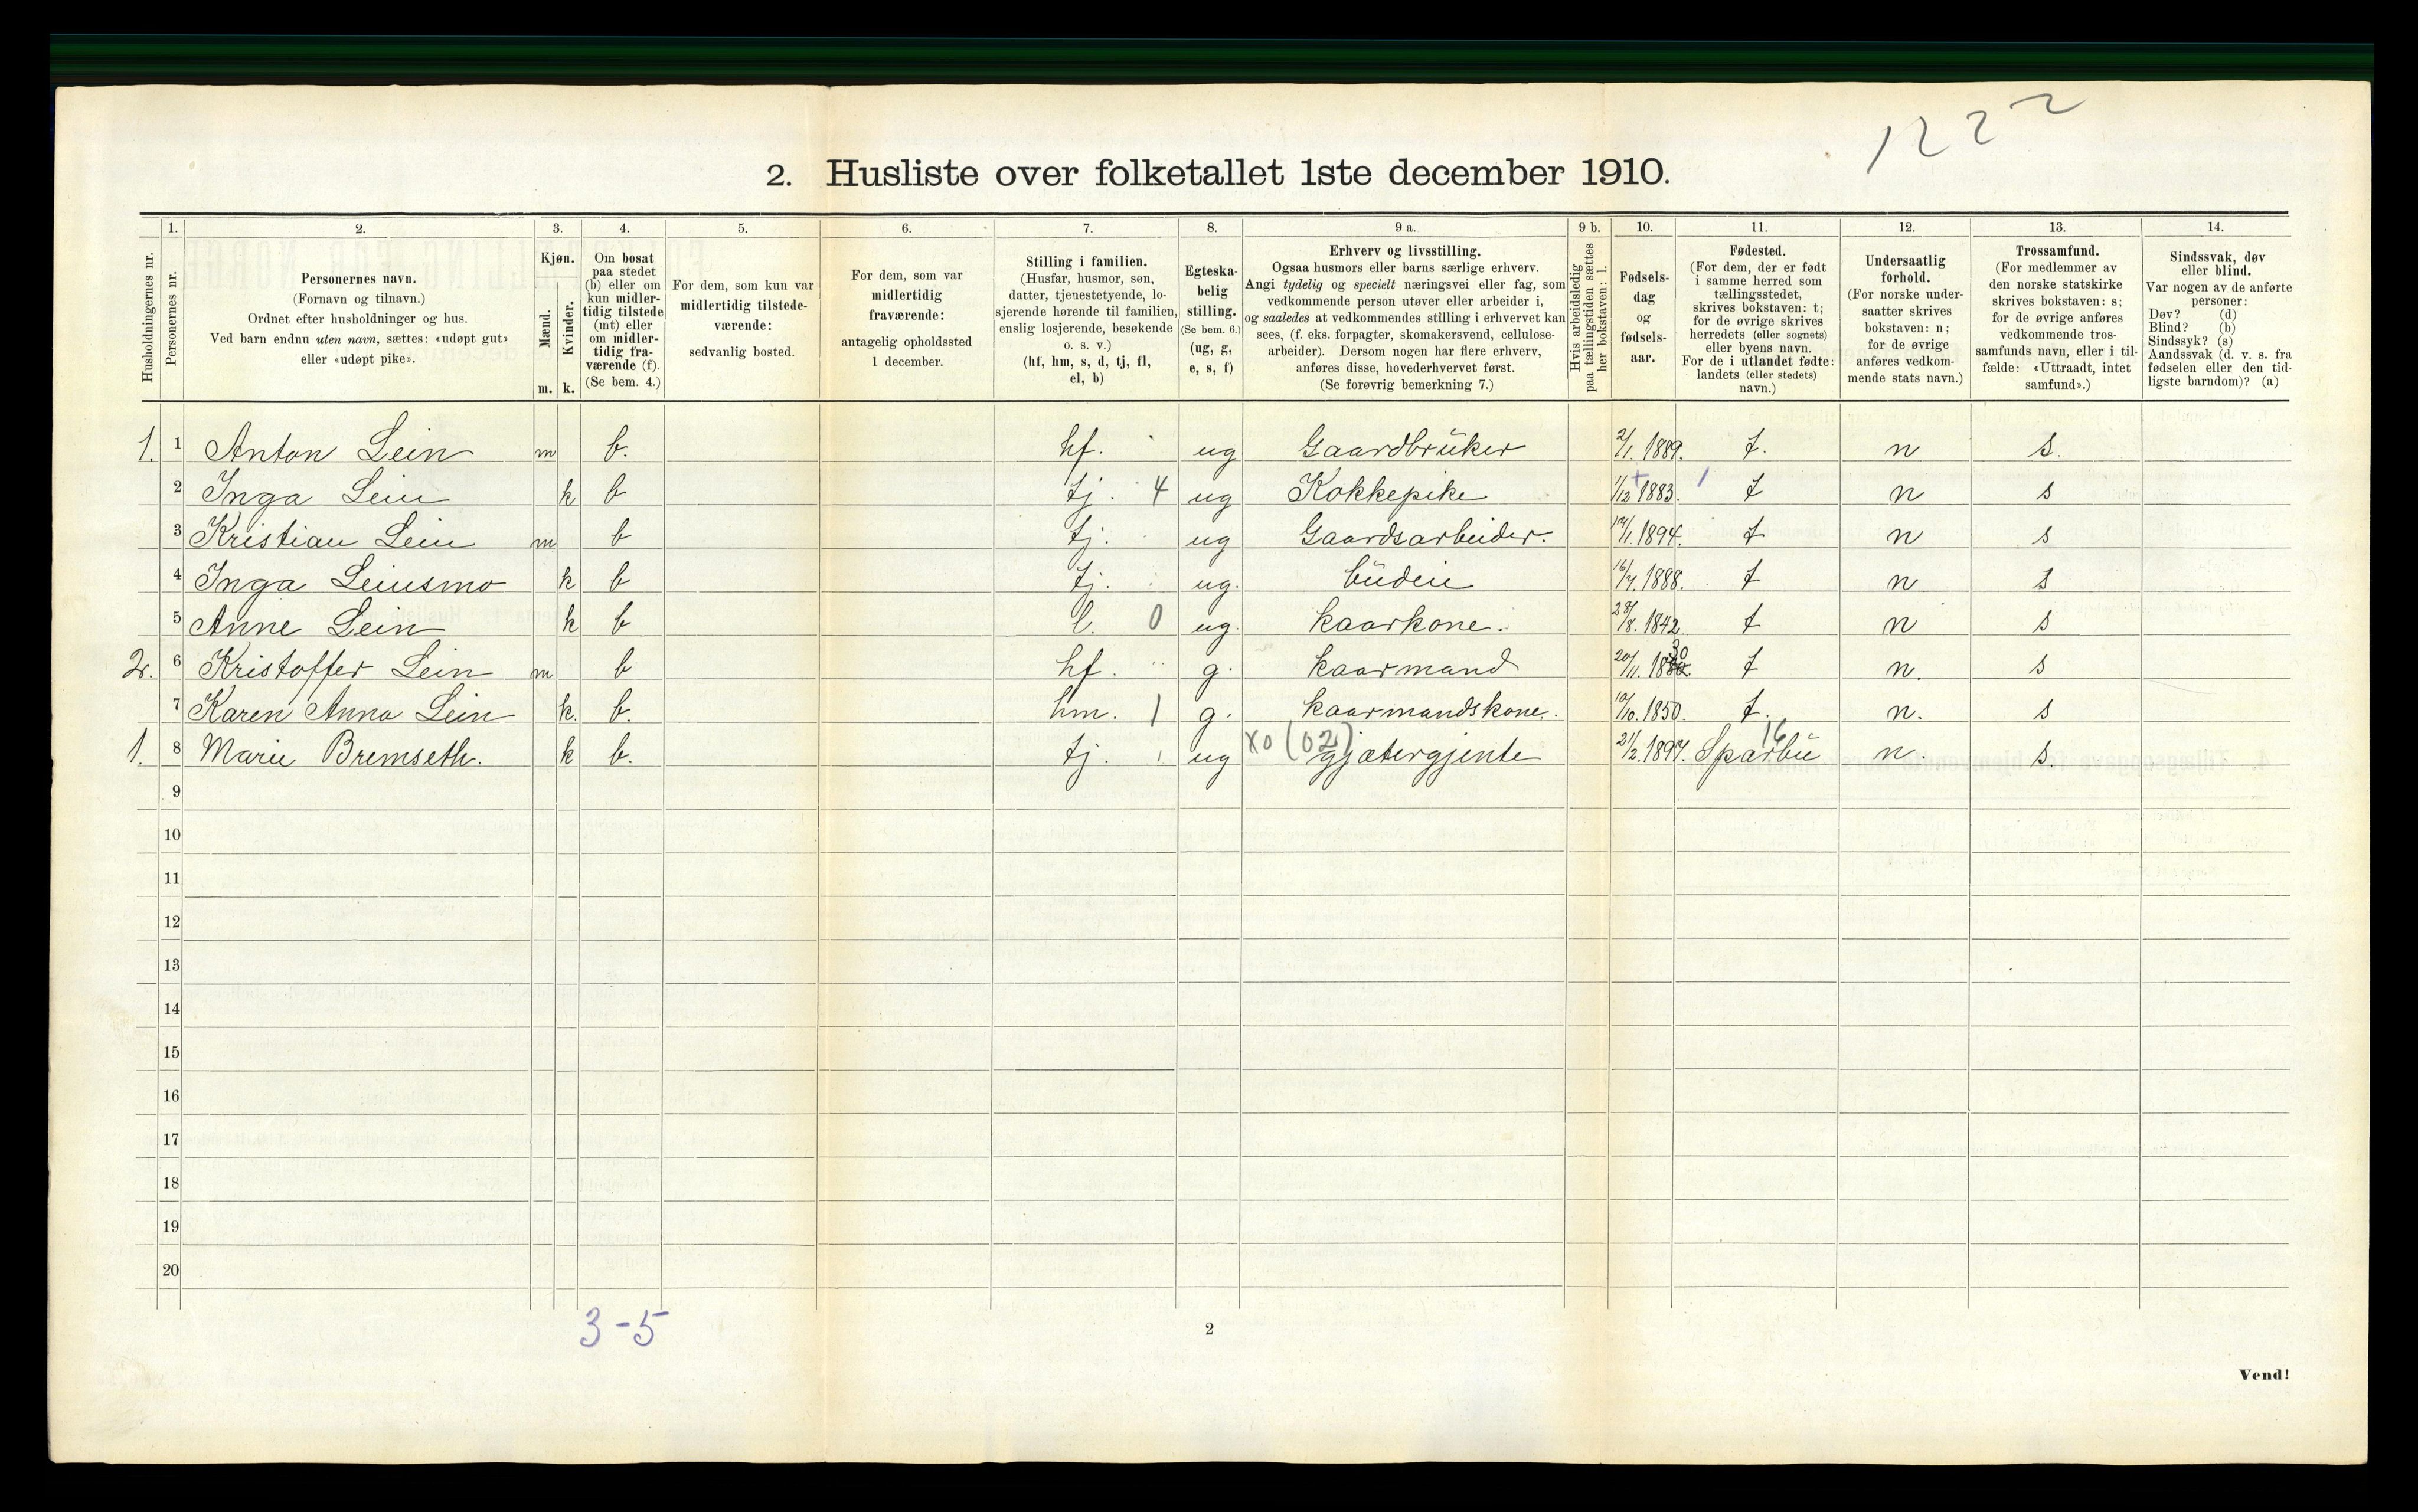 1222
2. Husliste over folketallet 1ste december 1910.
Husholdningernes nr.
1. Personernes nr.
2. Personernes navn.
(Fornavn og tilnavn.)
Ordnet efter husholdninger og hus.
Ved barn endnu uten navn, sættes: «udøpt gut»
eller «udøpt pike».
3. Kjøn.
Mænd. m.
Kvinder. k.
4. Om bosat
paa stedet
(b) eller om
kun midler-
tidig tilstede
(mt) eller
om midler-
tidig fra-
værende (f).
(Se bem. 4.)
5. For dem, som kun var
midlertidig tilstede-
værende:
sedvanlig bosted.
6. For dem, som var
midlertidig
fraværende:
antagelig opholdssted
1 december.
7. Stilling i familien.
(Husfar, husmor, søn,
datter, tjenestetyende, lo-
sjerende hørende til familien,
enslig losjerende, besøkende
o. s. v.)
(hf, hm, s, d, tj, fl,
el, b)
8. Egteska-
belig
stilling.
(Se bem. 6.)
(ug, g,
e, s, f)
9 a. Erhverv og livsstilling.
Ogsaa husmors eller barns særlige erhverv.
Angi tydelig og specielt næringsvei eller fag, som
vedkommende person utøver eller arbeider i,
og saaledes at vedkommendes stilling i erhvervet kan
sees, (f. eks. forpagter, skomakersvend, cellulose-
arbeider). Dersom nogen har flere erhverv,
anføres disse, hovederhvervet først.
(Se forøvrig bemerkning 7.)
9 b. Hvis arbeidsledig
paa tællingstiden sættes
her bokstaven: l.
10. Fødsels-
dag
og
fødsels-
aar.
11. Fødested.
(For dem, der er født
i samme herred som
tællingsstedet,
skrives bokstaven: t;
for de øvrige skrives
herredets (eller sognets)
eller byens navn.
For de i utlandet fødte:
landets (eller stedets)
navn.)
12. Undersaatlig
forhold.
(For norske under-
saatter skrives
bokstaven: n;
for de øvrige
anføres vedkom-
mende stats navn.)
13. Trossamfund.
(For medlemmer av
den norske statskirke
skrives bokstaven: s;
for de øvrige anføres
vedkommende tros-
samfunds navn, eller i til-
fælde: «Uttraadt, intet
samfund».)
14. Sindssvak, døv
eller blind.
Var nogen av de anførte
personer:
Døv? (d)
Blind? (b)
Sindssyk? (s)
Aandssvak (d. v. s. fra
fødselen eller den tid-
ligste barndom)? (a)
1. 1 Anton Lein m b. hf. ug Gaardbrüker 2/1 1889. t. n s.
2 Inga Lein k b tj. 4 ug Kokkepike 1/12 1883. t n s
3 Kristian Lein m b tj. ug Gaardsarbeider. 1894. t n s
4 Inga Leinsmo k b tj. ug. büdeie 1888. t n s
5 Anne Lein k b 0 ug. kaarkone. 28/8. 1842 t n s
2. 6 Kristoffer Lein m b hf. g. kaarmand 20/11. 1830 t n. s
7 Karen Anna Lein k. b. hm. 1 g. kaarmandskone. 10/10. 1850. t. n. s
1. 8 Marie Bremseth. k b. tj. ug xo (02) gjætergjente 21/2. 1897. Sparbü 16 n. s.
9
10
11
12
13
14
15
16
17
18
19
20
3-5
2
Vend!